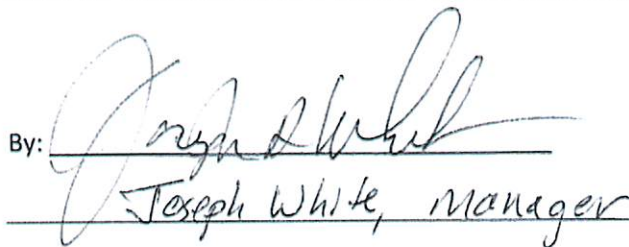 By: Joseph R White
Joseph White, Manager